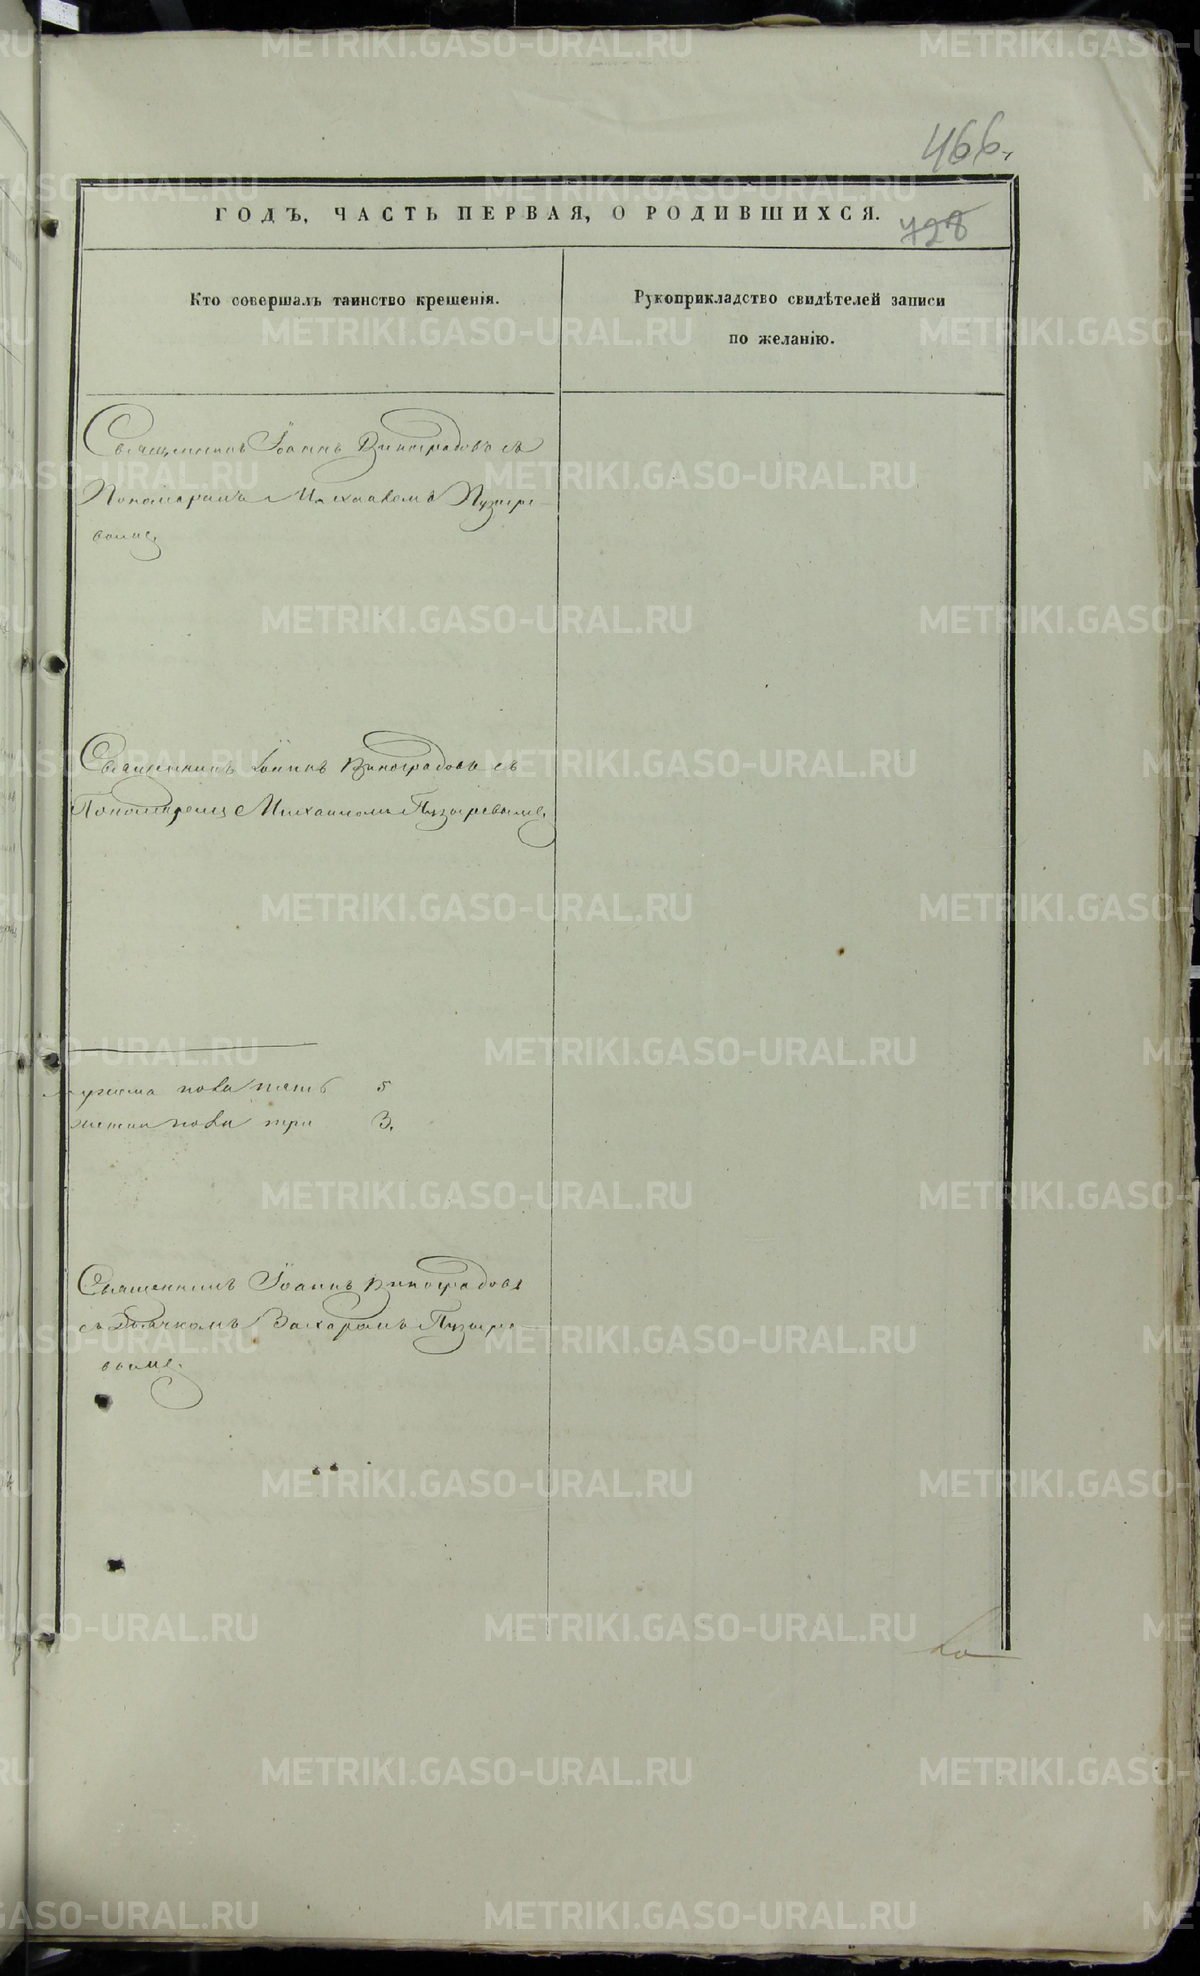 466.
ГОДЪ, ЧАСТЬ ПЕРВАЯ, О РОДИВШИХСЯ.
728
Кто совершалъ таинство крещенія.
Рукоприкладство свидѣтелей записи
по желанію.
Священникъ Іоаннъ Виноградовъ съ
Пономаремъ Михаиломъ Пузыре-
вымъ.
Священникъ Іоаннъ Виноградовъ съ
Пономаремъ Михаиломъ Пузыревымъ.
пола пять 5
пола три 3.
Священникъ Іоаннъ Виноградовъ
съ Дьячкомъ Захаромъ Пузыре-
вымъ.
METRIKI.GASO-URAL.RU